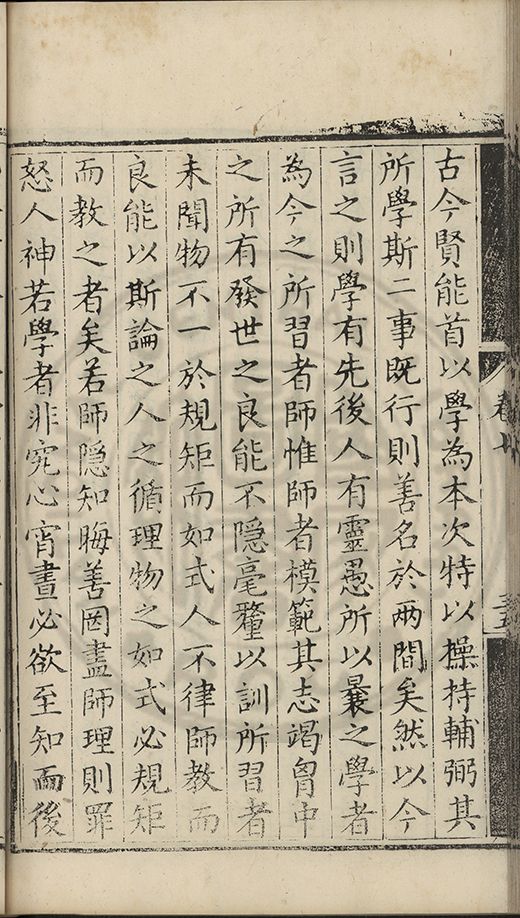 古今賢能首以學為本次特以操持輔弼其
所學斯二事既行則善名於两間矣然以今
言之則學有先後人有靈愚所以曩之學者
為今之所習者師惟師者模範其志竭胷中
之所有發世之良能不隱毫釐以訓所習者
未聞物不一於規矩而如式人不律師教而
良能以斯論之人之循理物之如式必規矩
而教之者矣若師隐知晦善罔盡師理則罪
怒人神若學者非究心宵晝必欲至知而後
卷七